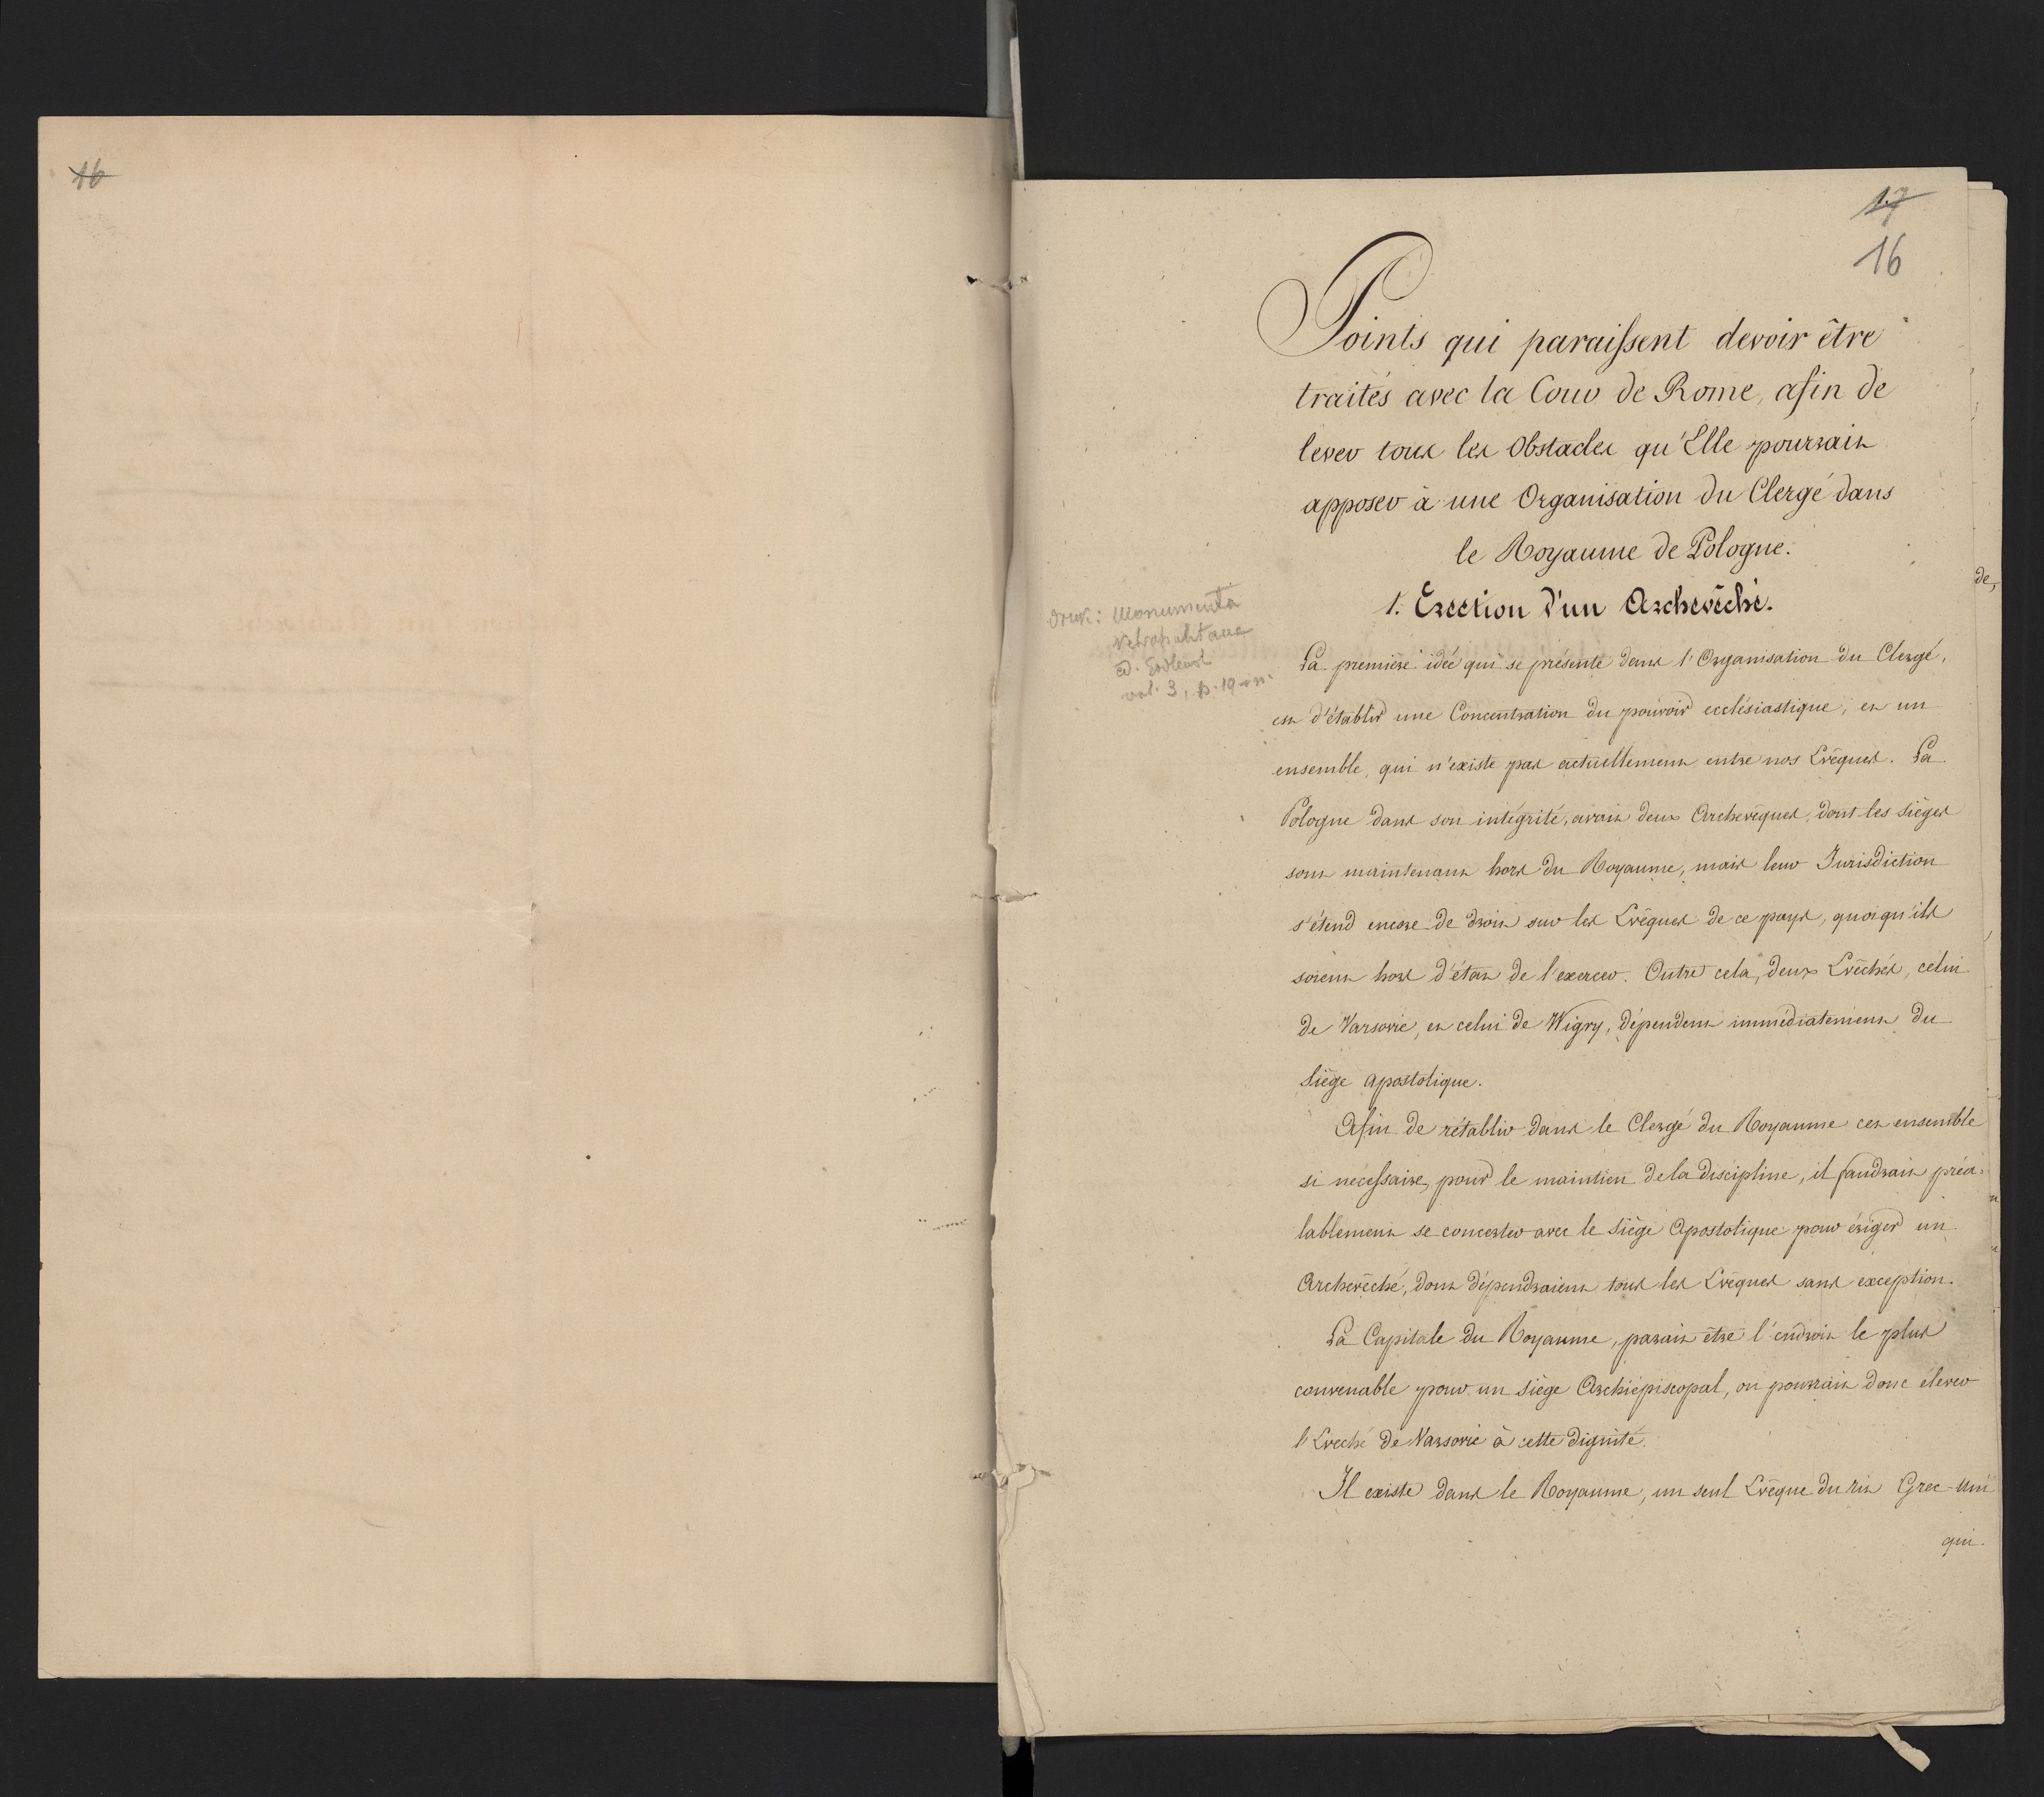 16
17
16
Points qui paraissent devoir être
traités avec la Cour de Rome, afin de
lever tous les Obstacles qu'Elle pourrait
apposer à une Organisation du Clergé dans
le Royaume de Pologne.
1. Erection d'un Archevêché.
druk: Monumenta
vol. 3, p. 19 nn.
La première idée qui se présente dans l'Organisation du Clergé,
est d'établir une Concentration du pouvoir ecclésiastique, et un
ensemble, qui n'existe pas actuellement entre nos Evêques. La
Pologne dans son intégrité, avait deux Archevêques, dont les sièges
sont maintenant hors du Royaume, mais leur Jurisdiction
s'étend encore de droit sur les Evêques de ce pays, quoiqu'ils
soient hors d'état de l'exercer. Outre cela, deux Evêchés, celui
de Varsovie, et celui de Wigry, dépendent immédiatement du
siège apostolique.
Afin de rétablir dans le Clergé du Royaume cet ensemble
si nécessaire, pour le maintien de la discipline, il faudrait préa-
lablement se concerter avec le siège Apostolique pour ériger un
Archevêché, dont dépendraient tous les Evêques sans exception.
La Capitale du Royaume, parait être l'endroit le plus
convenable pour un siège Archiépiscopal, on pourrait donc élever
l'Evêché de Varsovie à cette dignité.
Il existe dans le Royaume, un seul Evêque du rit Grec-Uni
qui
de,